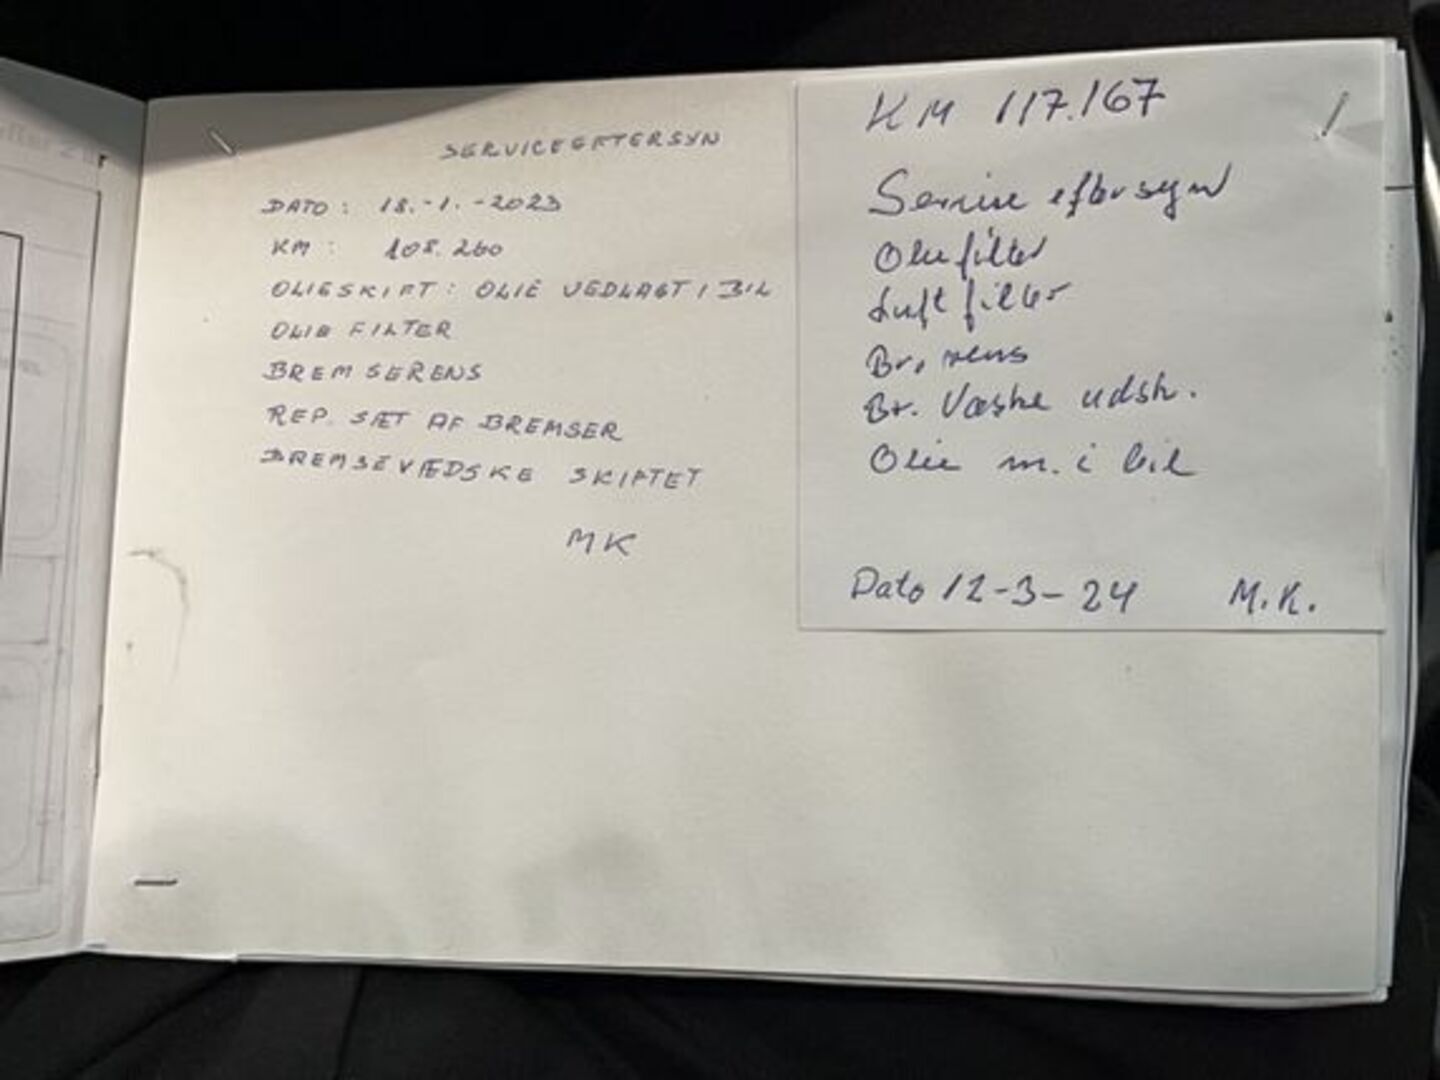 SERVICEEFTERSYN
DATO: 18.-1.-2023
KM: 108.260
OLIESKIFT: OLIE VEDLAGT I BIL
OLIE FILTER
BREMSERENS
REP. SÆT AF BREMSER
BREMSEVÆDSKE SKIFTET
MK
KM 117.167
Service eftersyn
Oliefilter
Luftfilter
Br. rens
Br. Væske udsk.
Olie m. i bil
Dato 12-3-24 M.K.